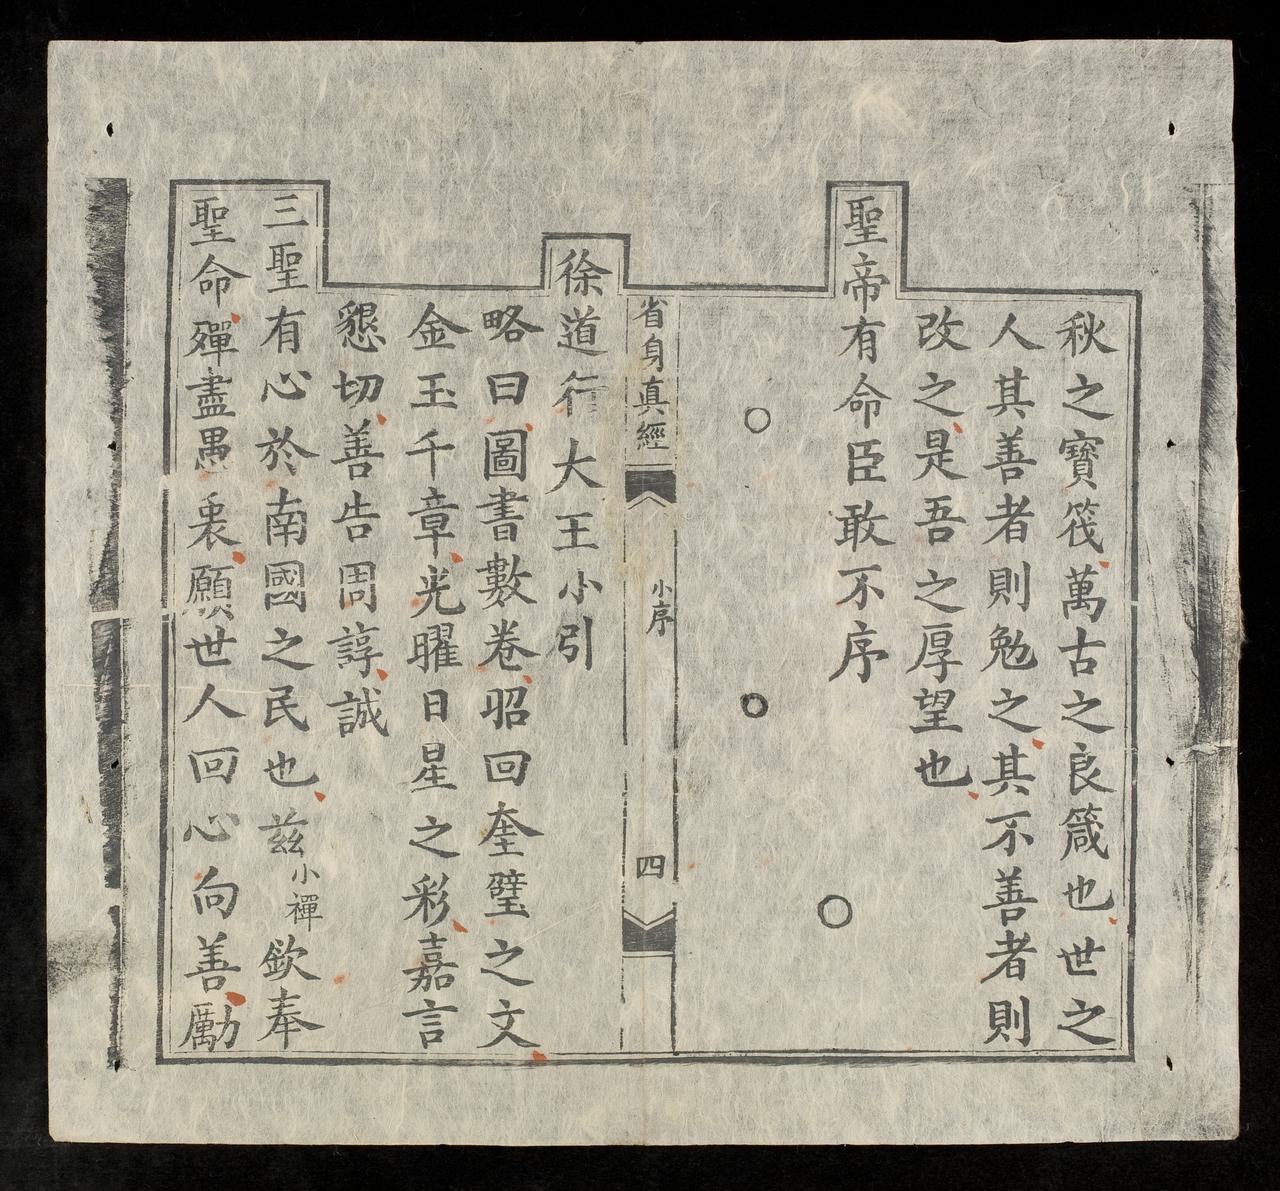 秋之寶筏萬古之良箴也世之
人其善者則勉之其不善者則
改之是吾之厚望也
聖帝有命臣敢不序
省身真經
小序
四
徐道行大王小引
略曰圖書數卷昭回奎璧之文
金玉千章光曜日星之彩嘉言
懇切善告周諄誠
三聖有心於南國之民也茲小禪欽奉
聖命殫盡愚衷願世人回心向善勵